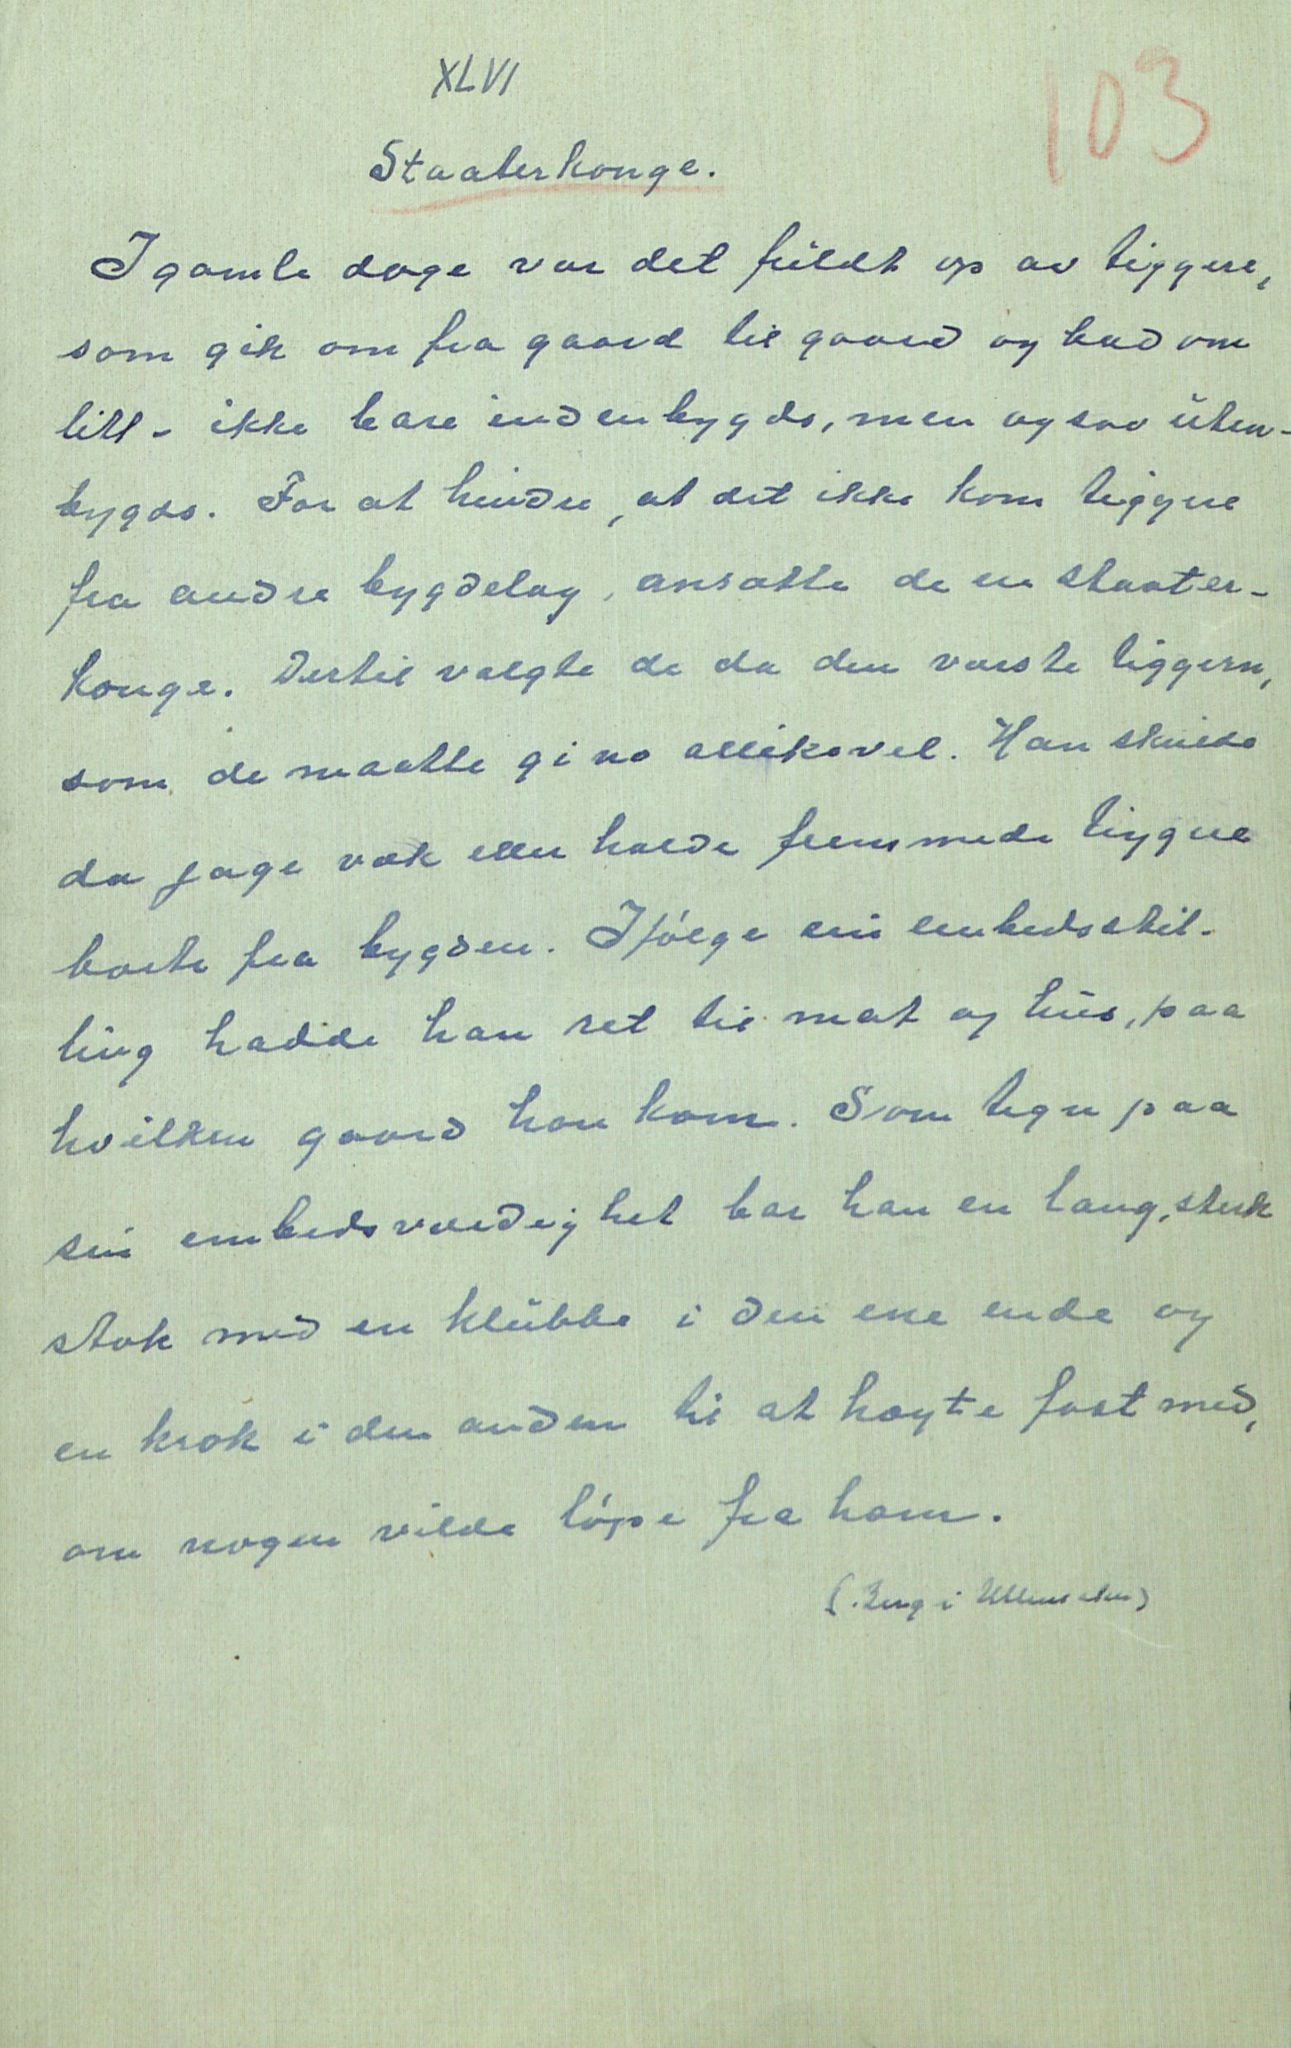 XLVI
103
Staaterkonge.
I gamle dage var det fuldt op av tiggere,
som gik om fra gaard til gaard og bad om
litt - ikke bare indenbygds, men ogsaa uten-
bygds. For at hindre, at det ikke kom tiggere
fra andre bygdelag, ansatte de en staater-
konge. Dertil valgte de da den værste tiggern,
som de maatte gi no allikevel. Han skulde
da jage væk eller holde fremmede tiggere
borte fra bygden. Ifølge sin embedsstil-
ling hadde han ret til mat og hus, paa
hvilken gaard han kom. Som tegn paa
sin embedsværdighet bar han en lang, sterk
stok med en klubbe i den ene ende og
en krok i den anden til at høgte fast med,
om nogen vilde løpe fra ham.
(. Berg i Ullensaker)